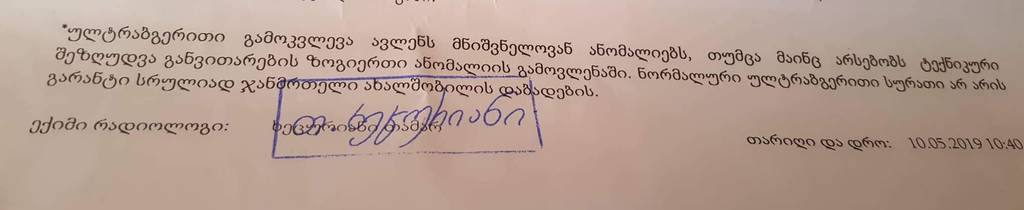 *ულტრაბგერითი გამოკვლევა ავლენს მნიშვნელოვან ანომალიებს, თუმცა მაინც არსებობს ტექნიკური
შეზღუდვა განვითარების ზოგიერთი ანომალიის გამოვლენაში. ნორმალური ულტრაბგერითი სურათი არ არის
გარანტი სრულიად ჯანმრთელი ახალშობილის დაბადების.
ექიმი რადიოლოგი: ხეცურიანი თამარ
თ. ხეცურიანი
თარიღი და დრო: 10.05.2019 10:40